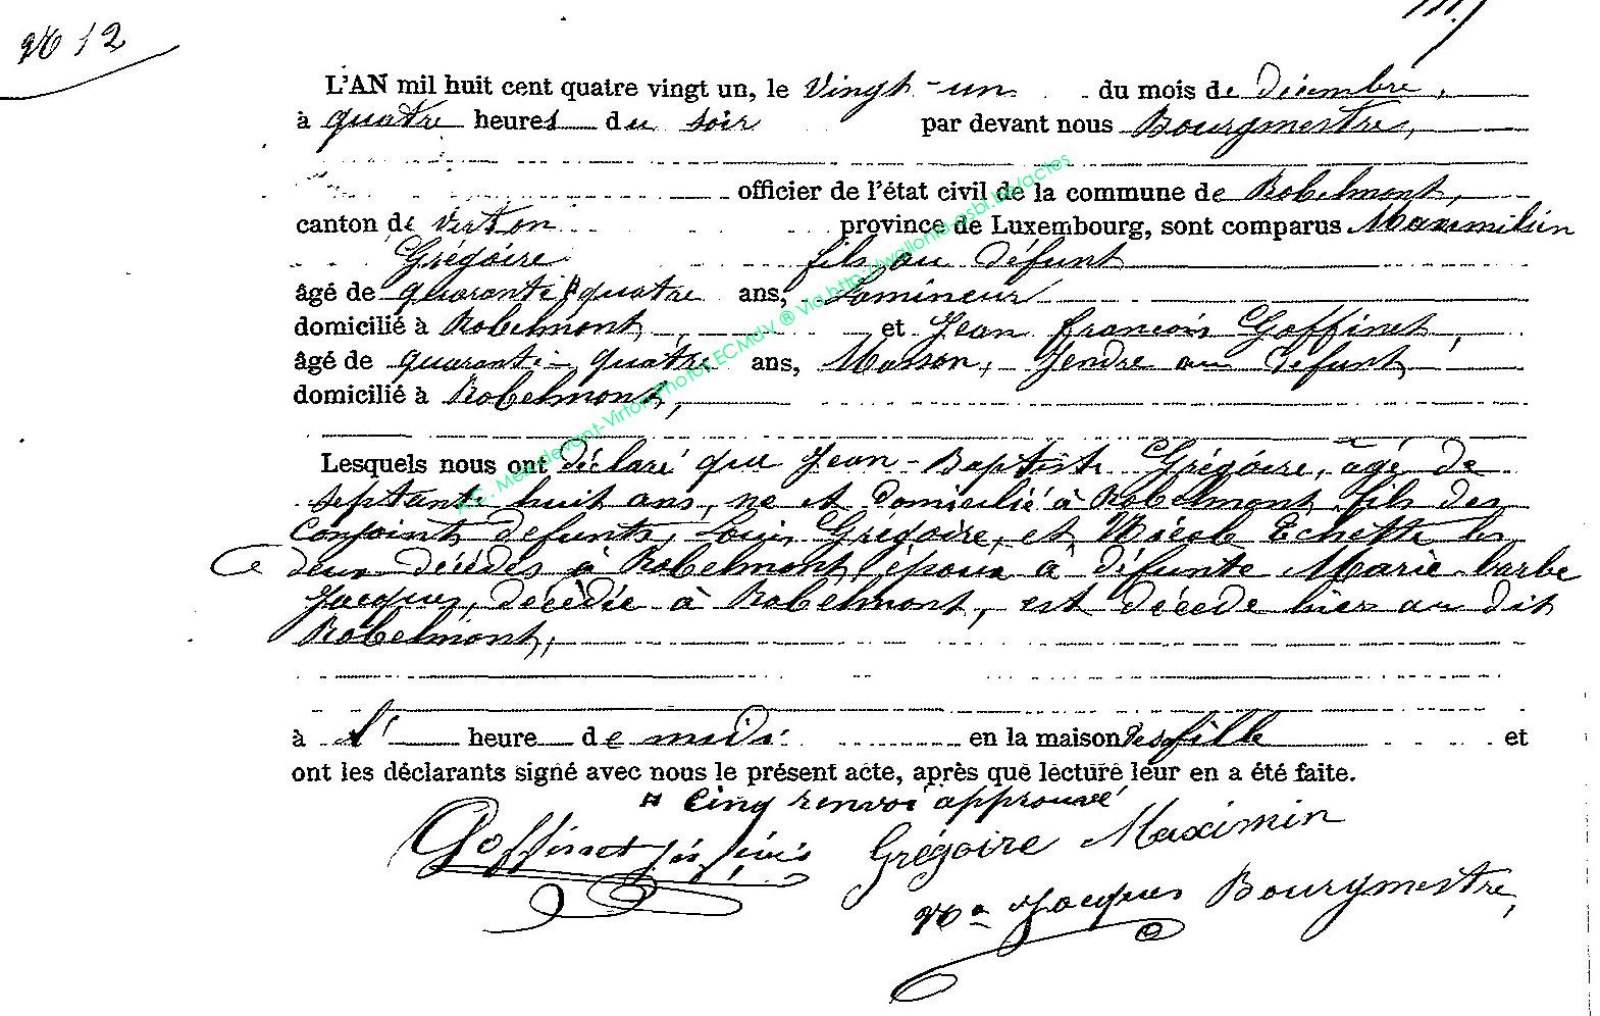 No 12
L'AN mil huit cent quatre vingt un, le Vingt-un du mois de Décembre,
à quatre heures du soir par devant nous Bourgmestre,
officier de l'état civil de la commune de Robelmont,
canton de Virton province de Luxembourg, sont comparus Maximilien
Grégoire fils au défunt
âgé de quarante quatre ans, Lamineur
domicilié à Robelmont, et Jean françois Goffinet,
âgé de quarante-quatre ans, Masson, Gendre au défunt
domicilié à Robelmont,
Lesquels nous ont déclaré que Jean-Baptiste Grégoire, agé de
septante huit ans, né et domicilié à Robelmont, fils des
conjoints défunts, Louis Grégoire, et Nicole Echette les
deux décédés à Robelmont, époux à défunte Marie barbe
Jacques, décédée à Robelmont, est décédé hier au dit
Robelmont,
à 1 heure de midi en la maison de sa fille et
ont les déclarants signé avec nous le présent acte, après que lecture leur en a été faite.
cinq renvoi approuvé
Goffinet Grégoire Maximin
Jacques Bourgmestre,
via http://wallonia-asbl.be/actes